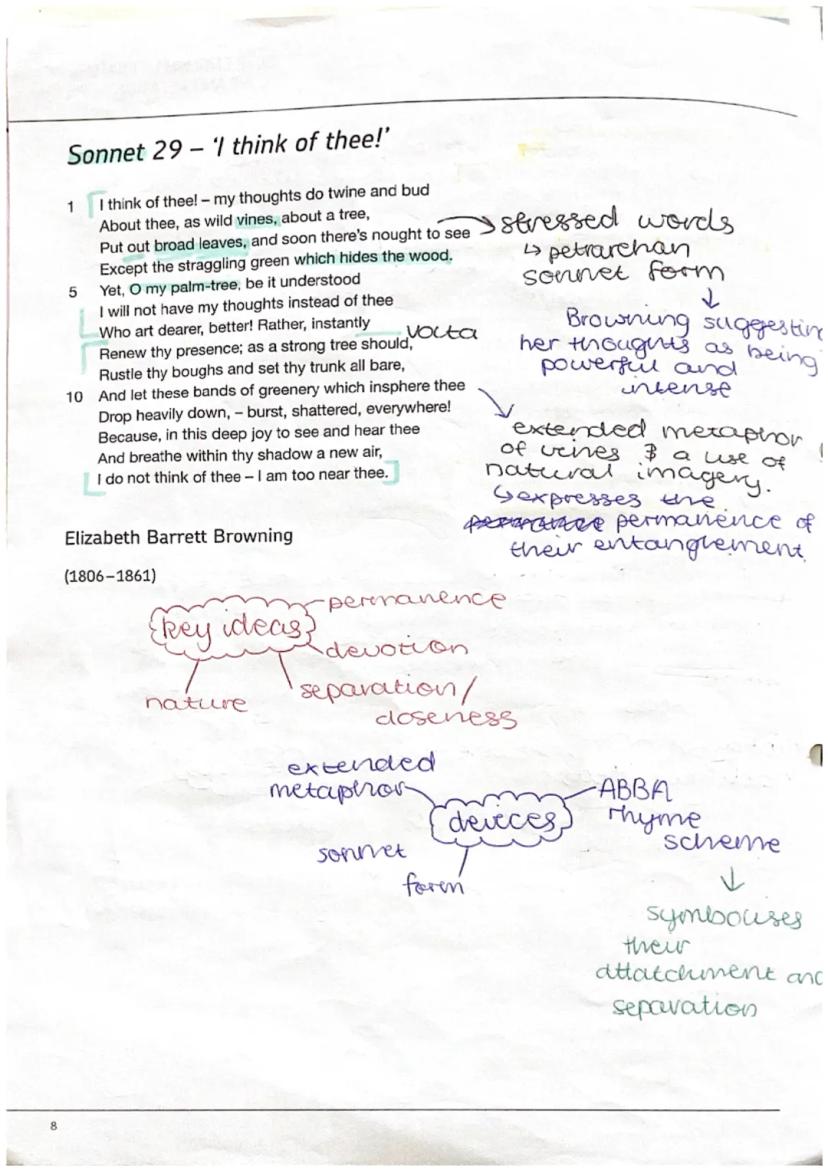 Sonnet 29 – 'I think of thee!'
1 I think of thee! – my thoughts do twine and bud
About thee, as wild vines, about a tree,
Put out broad leaves, and soon there's nought to see
Except the straggling green which hides the wood.
5 Yet, O my palm-tree, be it understood
I will not have my thoughts instead of thee
Who art dearer, better! Rather, instantly
Renew thy presence; as a strong tree should,
Rustle thy boughs and set thy trunk all bare,
10 And let these bands of greenery which insphere thee
Drop heavily down, – burst, shattered, everywhere!
Because, in this deep joy to see and hear thee
And breathe within thy shadow a new air,
I do not think of thee – I am too near thee.
volta
→ stressed words
↳ petrarchan
sonnet form
↓
Browning suggesting
her thoughts as being
powerful and
intense
extended metaphor
of vines & a use of
natural imagery.
↳ expresses the
permanence of
their entanglement
Elizabeth Barrett Browning
(1806–1861)
key ideas
permanence
devotion
separation/
closeness
nature
extended
metaphor
devices
ABBA
rhyme
scheme
sonnet
form
↓
symbolises
their
attatchment and
separation
8